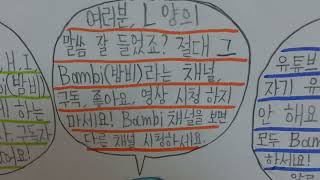 여러분, L 양의
말씀 잘 들었죠? 절대 그
Bambi(밤비)라는 채널,
구독, 좋아요, 영상 시청 하지
마세요! Bambi 채널을 보면
다른 채널 시청하세요.
(밤비)
하는
구독자
유튜브
자기
안 해요
모두 Bam
하세요!